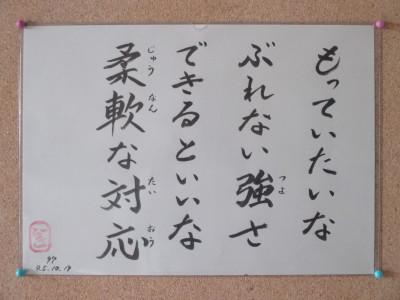 もっていたいな
ぶれない強さ
つよ
できるといいな
柔軟な対応
じゅう なん たい おう